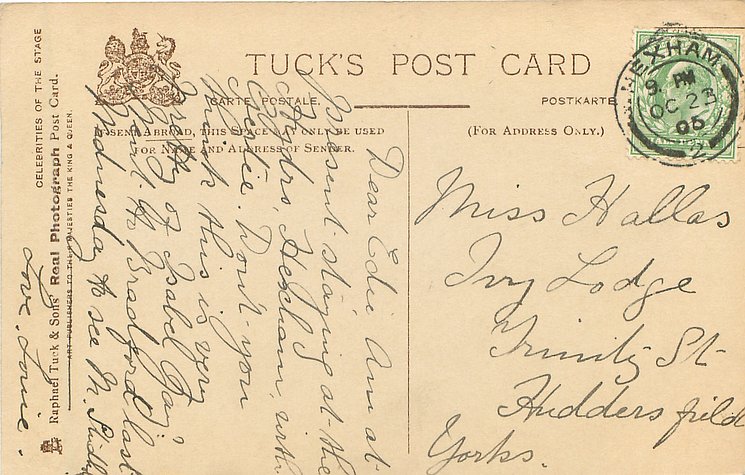 TUCK'S POST CARD
CARTE POSTALE.
POSTKARTE
IF SENT ABROAD, THIS SPACE MAY ONLY BE USED
FOR NAME AND ADDRESS OF SENDER.
(FOR ADDRESS ONLY.)
HEXHAM
9 PM
OC 23
05
2
Miss Hallas
Ivy Lodge
Trinity St
Huddersfield
Yorks.
Dear Edie Am at
Present staying at the
Hydro, Hexham, with
Sadie. Don't you
think this is very
pretty of Isabel Jay.
Went to Bradford last
Wednesday to see M. Studholme
Love. Louie.
CELEBRITIES OF THE STAGE
Raphael Tuck & Sons' Real Photograph Post Card.
ART PUBLISHERS TO THEIR MAJESTIES THE KING & QUEEN.